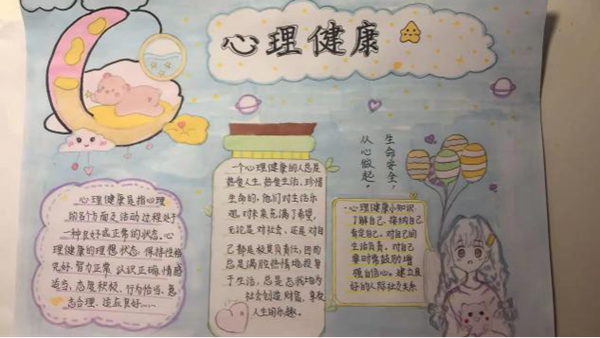 心理健康
生命安全，
从心做起。
心理健康是指心理
的各个方面及活动过程处于
一种良好或正常的状态。心
理健康的理想状态，保持性格
完好、智力正常、认识正确、情感
适当、态度积极、行为恰当、
适应良好……
一个心理健康的人总是
热爱人生，热爱生活，珍惜
生命的，他们对生活乐
观，对未来充满了希望。
无论是对社会，还是对自
己都是极其负责任，因而
总是满腔热情地投身
于生活，总是
社会创造财富，
人生的乐趣。
心理健康小知识
了解自己、接纳自己
肯定自己。对自己的
生活负责。对自己
要时常鼓励增
强自信心。建立良
好的人际社交关系